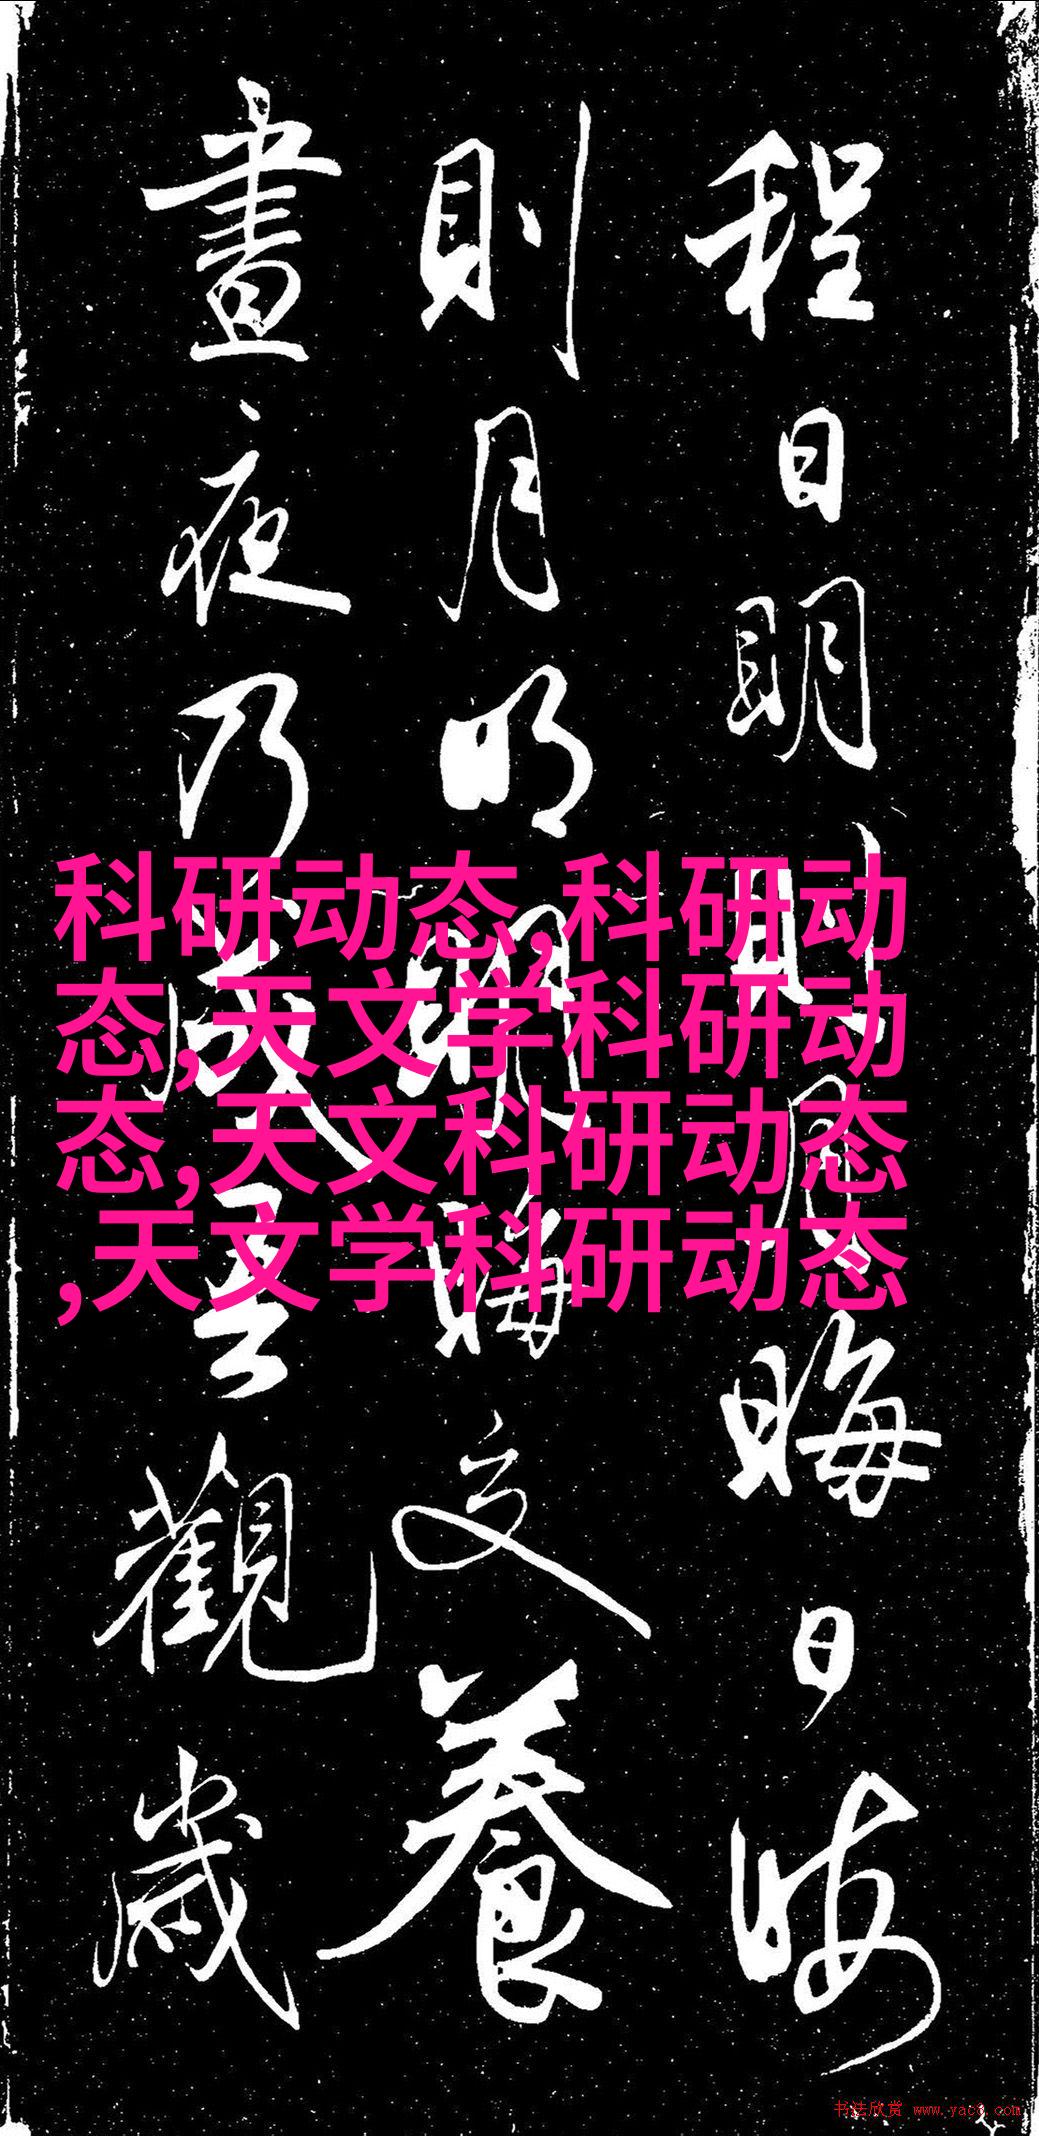 程日明則月晦日晦
則月明明晦交養
晝夜乃成吾觀歲
科研动态,科研动
态,天文学科研动
态,天文科研动态
,天文学科研动态
书法欣赏 www.yac8.com